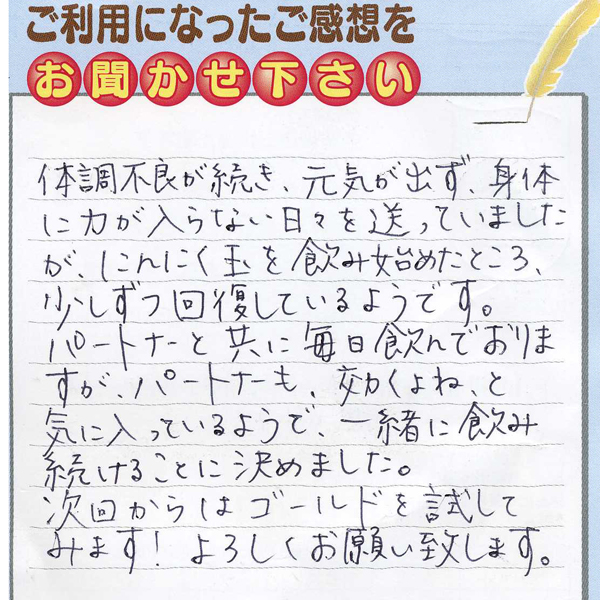 ご利用になったご感想を
お聞かせ下さい
体調不良が続き、元気が出ず、身体
に力が入らない日々を送っていました
が、にんにく玉を飲み始めたところ、
少しずつ回復しているようです。
パートナーと共に毎日飲んでおりま
すが、パートナーも、効くよね、と
気に入っているようで、一緒に飲み
続けることに決めました。
次回からはゴールドを試して
みます！よろしくお願い致します。